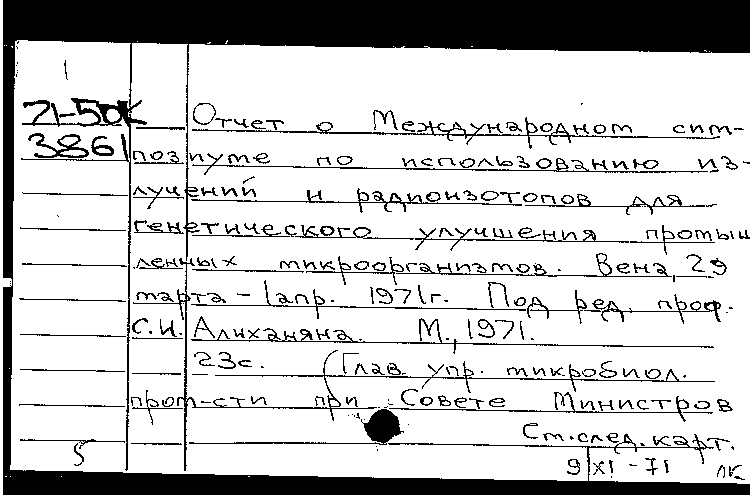 1
71-50К
3861
Отчет о Международном сим-
позиуме по использованию из-
лучений и радиоизотопов для
генетического улучшения промыш
ленных микроорганизмов. Вена, 29
марта - 1 апр. 1971г. Под ред. проф.
С.И. Алиханяна. М., 1971.
23с. (Глав упр. микробиол.
пром-сти при Совете Министров
См. след. карт.
5
9/XI - 71 ЛК